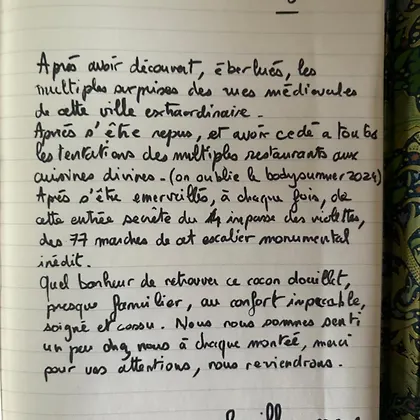 Après avoir découvert, éberlués, les
multiples surprises des rues médiévales
de cette ville extraordinaire.
Après s'être repus, et avoir cédé a toutes
les tentations des multiples restaurants aux
cuisines divines. (on oublie le bodysummer 2024)
Après s'être émerveillés, à chaque fois, de
cette entrée secrète du 4 impasse des violettes,
des 77 marches de cet escalier monumental
inédit.
Quel bonheur de retrouver ce cocon douillet,
presque familier, au confort impeccable,
soigné et cossu. Nous nous sommes senti
un peu chez nous à chaque montée, merci
pour vos attentions, nous reviendrons.